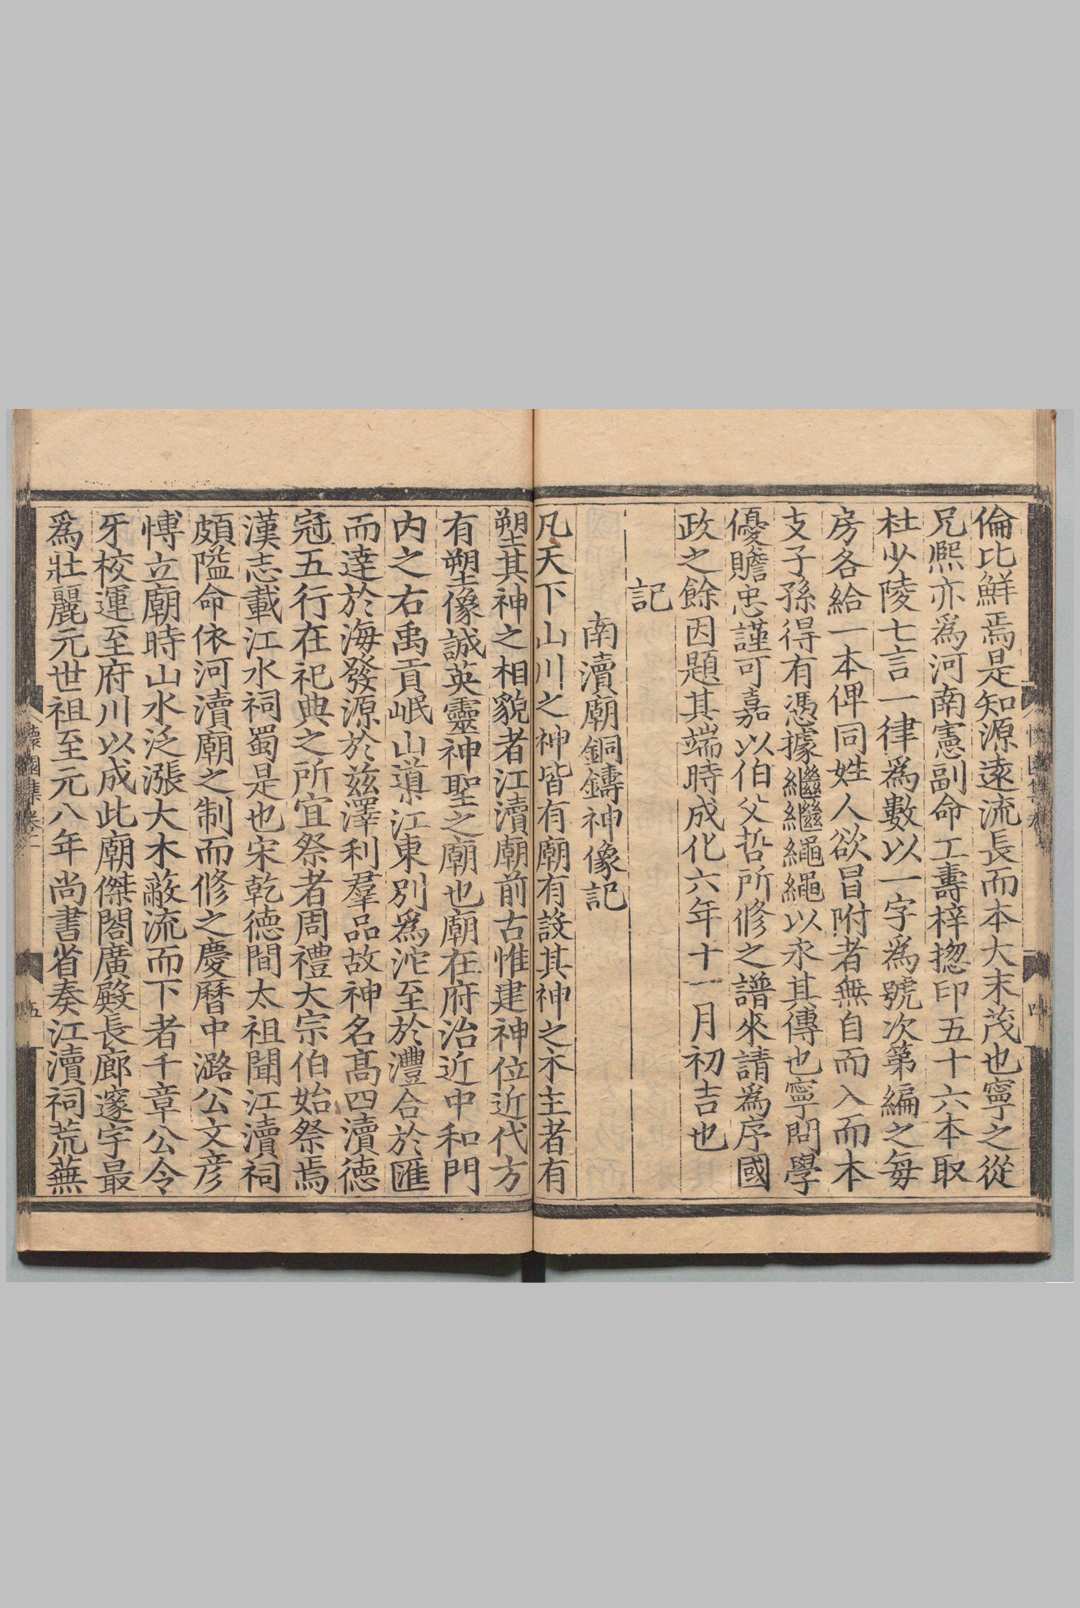 倫比鮮焉是知源遠流長而本大末茂也寧之從
兄熙亦為河南憲副命工壽梓揔印五十六本取
杜少陵七言一律為數以一字為號次第編之每
房各給一本俾同姓人欲冒附者無自而入而本
支子孫得有憑據繼繼繩繩以永其傳也寧問學
優贍忠謹可嘉以伯父哲所修之譜來請為序國
政之餘因題其端時成化六年十一月初吉也
記
南瀆廟銅鑄神像記
凡天下山川之神皆有廟有設其神之木主者有
塑其神之相貌者江瀆廟前古惟建神位近代方
有塑像誠英靈神聖之廟也廟在府治近中和門
内之右禹貢岷山導江東別為沱至於澧合於匯
而達於海發源於茲澤利羣品故神名髙四瀆德
冠五行在祀典之所宜祭者周禮大宗伯始祭焉
漢志載江水祠蜀是也宋乾德間太祖聞江瀆祠
頗隘命依河瀆廟之制而修之慶曆中潞公文彦
愽立廟時山水泛漲大木蔽流而下者千章公令
牙校運至府川以成此廟傑閣廣殿長廊邃宇最
為壯麗元世祖至元八年尚書省奏江瀆祠荒蕪
懷園集卷二
五